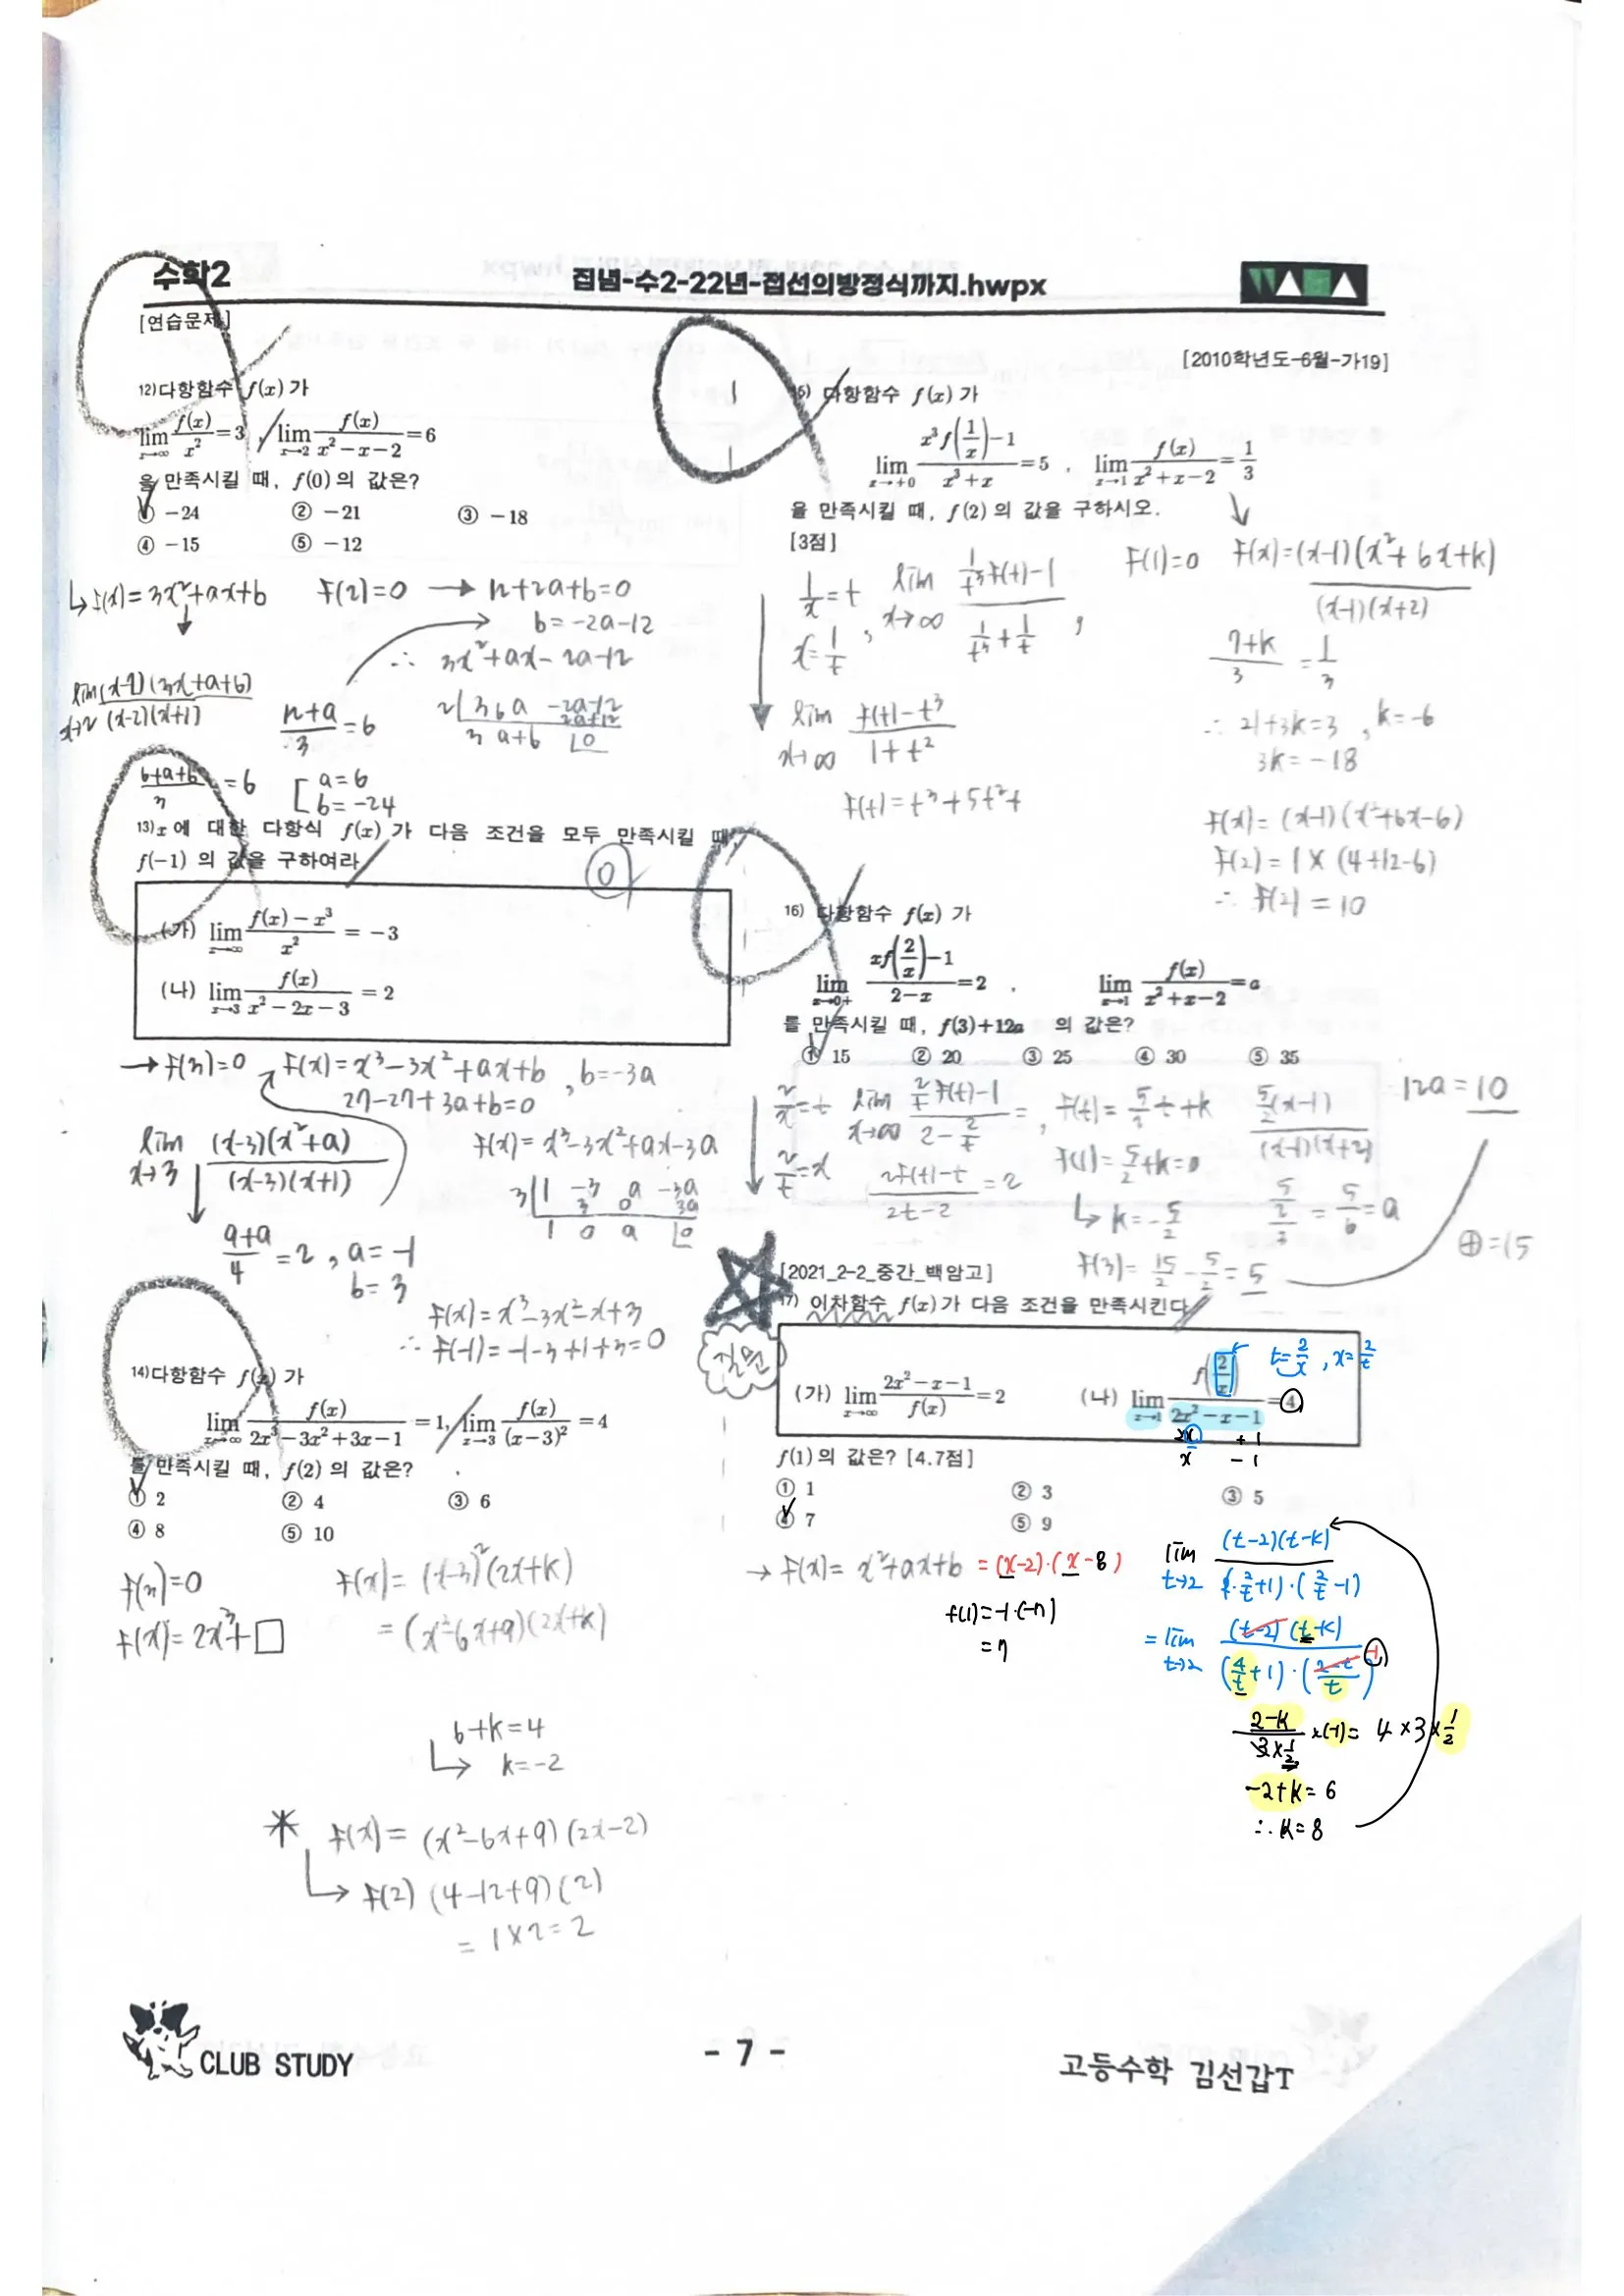 수학2
집념-수2-22년-접선의방정식까지.hwpx
[연습문제]
12)다항함수 f(x)가
lim_{x→∞} f(x)/x² = 3, lim_{x→2} f(x)/(x²-x-2) = 6
을 만족시킬 때, f(0)의 값은?
① -24 ② -21 ③ -18
④ -15 ⑤ -12
f(x)=3x²+ax+b f(2)=0 → 12+2a+b=0
b=-2a-12
∴ 3x²+ax-2a-12
lim_{x→2} (x-2)(3x+a+6)/(x-2)(x+1)
(12+a)/3=6
2| 3 a -2a-12
6 2a+12
3 a+6 |0
(6+a+6)/3 = 6
a=6
b=-24
13)x에 대한 다항식 f(x)가 다음 조건을 모두 만족시킬 때,
f(-1)의 값을 구하여라
0
(가) lim_{x→∞} (f(x)-x³)/x² = -3
(나) lim_{x→3} f(x)/(x²-2x-3) = 2
→ f(3)=0 f(x)=x³-3x²+ax+b, b=-3a
27-27+3a+b=0
lim_{x→3} (x-3)(x²+a)/(x-3)(x+1)
f(x)=x³-3x²+ax-3a
3| 1 -3 a -3a
3 0 3a
1 0 a |0
(9+a)/4=2, a=-1
b=3
f(x)=x³-3x²-x+3
∴ f(-1)=-1-3+1+3=0
14)다항함수 f(x)가
lim_{x→∞} f(x)/(2x³-3x²+3x-1) = 1, lim_{x→3} f(x)/(x-3)² = 4
를 만족시킬 때, f(2)의 값은?
① 2 ② 4 ③ 6
④ 8 ⑤ 10
f(3)=0
f(x)=2x³+□
f(x)=(x-3)²(2x+k)
=(x²-6x+9)(2x+k)
6+k=4
k=-2
* f(x)=(x²-6x+9)(2x-2)
→ f(2) (4-12+9)(2)
= 1×2=2
[2010학년도-6월-가19]
15) 다항함수 f(x)가
lim_{x→+0} (x³f(1/x)-1)/(x³+x) = 5, lim_{x→1} f(x)/(x²+x-2) = 1/3
을 만족시킬 때, f(2)의 값을 구하시오.
[3점]
1/x=t, x=1/t
lim_{x→∞} (1/t³ f(t)-1)/(1/t³+1/t),
lim_{x→∞} (f(t)-t³)/(1+t²)
f(t)=t³+5t²+
f(1)=0 f(x)=(x-1)(x²+6x+k)
(x-1)(x+2)
(7+k)/3=1/3
∴ 21+3k=3, k=-6
3k=-18
f(x)=(x-1)(x²+6x-6)
f(2)=1×(4+12-6)
∴ f(2)=10
16) 다항함수 f(x)가
lim_{x→0+} (xf(2/x)-1)/(2-x) = 2, lim_{x→1} f(x)/(x²+x-2) = a
를 만족시킬 때, f(3)+12a 의 값은?
① 15 ② 20 ③ 25 ④ 30 ⑤ 35
2/x=t lim_{x→∞} (2/t f(t)-1)/(2-2/t) =, f(t)=5/2 t+k
2/t=x (2f(t)-t)/(2t-2)=2
f(1)=5/2+k=0
k=-5/2
5/2(x-1)/(x-1)(x+2)
(5/2)/3=5/6=a
f(3)=15/2-5/2=5
12a=10
⊕=15
[2021_2-2_중간_백암고]
17) 이차함수 f(x)가 다음 조건을 만족시킨다
질문
(가) lim_{x→∞} (2x²-x-1)/f(x) = 2 (나) lim_{x→1} f(2/x)/(2x²-x-1) = 4
t=2/x, x=2/t
2x +1
x -1
f(1)의 값은? [4.7점]
① 1 ② 3 ③ 5
④ 7 ⑤ 9
→ f(x)=x²+ax+b =(x-2)·(x-8)
f(1)=-1·(-7)
=7
lim_{t→2} (t-2)(t-k)/(2·2/t+1)·(2/t-1)
=lim_{t→2} (t-2)(t-k)/(4/t+1)·((2-t)/t) -1
(2-k)/(3×1/2)×(-1)= 4×3×1/2
-2+k=6
∴ k=8
CLUB STUDY
- 7 -
고등수학 김선갑T